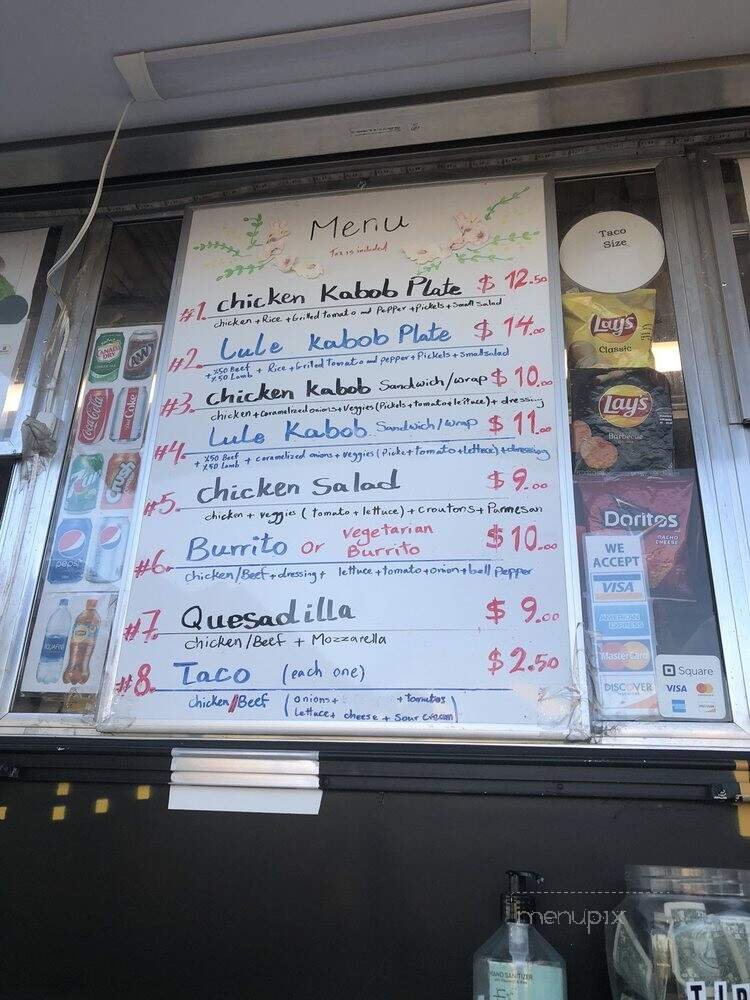 Menu
Tax is included
#1. Chicken Kabob Plate $ 12.50
chicken + Rice + Grilled tomato and Pepper + Pickels + Small salad
#2. Lule Kabob Plate $ 14.00
+ %50 Beef
+ %50 Lamb + Rice + Grilled tomato and pepper + Pickels + small salad
#3. Chicken Kabob Sandwich/wrap $ 10.00
chicken + caramelized onions + veggies (Pickels + tomato + lettuce) + dressing
#4. Lule Kabob Sandwich/wrap $ 11.00
+ %50 Beef
+ %50 Lamb + caramelized onions + veggies (Pickel + tomato + lettuce) + dressing
#5. Chicken Salad $ 9.00
chicken + veggies (tomato + lettuce) + croutons + Parmesan
#6. Burrito or Vegetarian Burrito $ 10.00
chicken/Beef + dressing + lettuce + tomato + onion + bell Pepper
#7. Quesadilla $ 9.00
chicken/Beef + Mozzarella
#8. Taco (each one) $ 2.50
chicken/Beef (onions + + tomatoes
Lettuce + cheese + Sour cream)
Taco
Size
Lay's
Classic
Lay's
Barbecue
Doritos
NACHO
CHEESE
WE
ACCEPT
VISA
AMERICAN
EXPRESS
MasterCard
DISCOVER
Square
VISA
CANADA
DRY
A&W
Coca-Cola
Diet Coke
Crush
pepsi
AQUAFINA
HAND SANITIZER
menupix
TIP